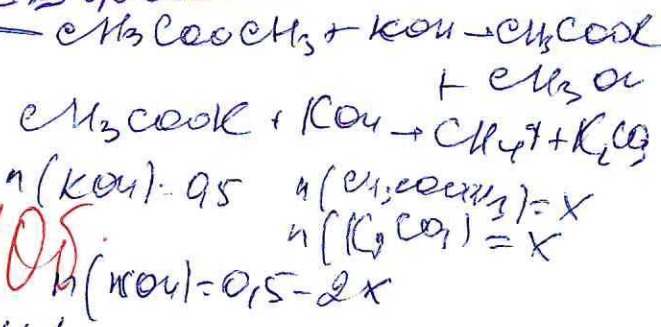 CH3COOCH3 + KOH → CH3COOK
+ CH3OH
CH3COOK + KOH → CH4↑ + K2CO3
n(KOH) = 0,5 n(CH3COOCH3) = x
n(K2CO3) = x
n(KOH) = 0,5 - 2x